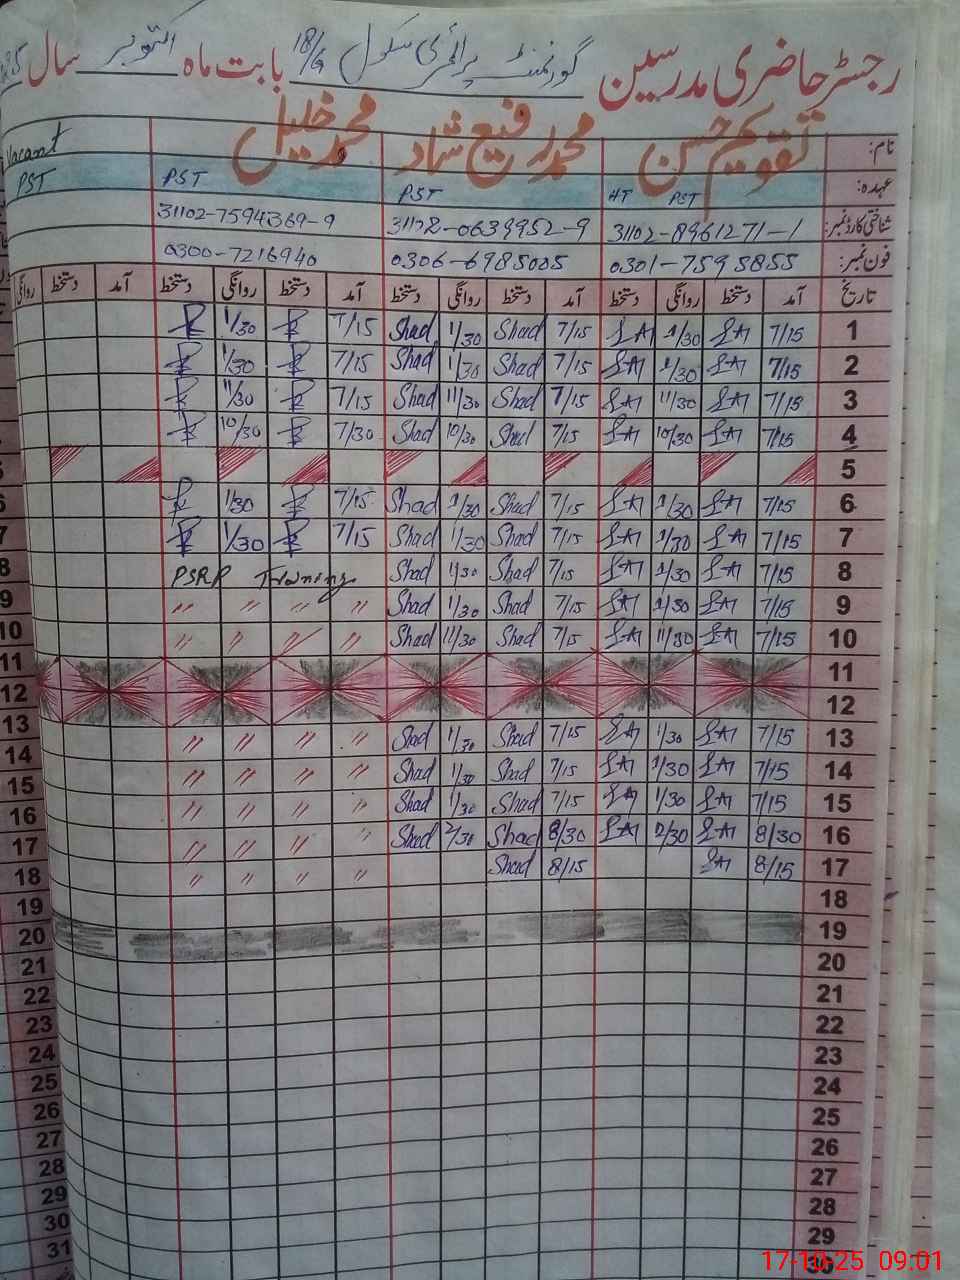 رجسٹر حاضری مدرسین گورنمنٹ پرائمری سکول 18/G بابت ماہ اکتوبر سال
نام: تقویم حسن محمد رفیع شاد محمد خلیل Vacant
عہدہ: HT PST PST PST PST
شناختی کارڈ نمبر: 31102-8961271-1 31102-0639952-9 31102-7594369-9
فون نمبر: 0301-7595855 0306-6985005 0300-7216940
تاریخ آمد دستخط روانگی دستخط آمد دستخط روانگی دستخط آمد دستخط روانگی دستخط آمد دستخط روانگی
1 7/15 1/30 7/15 Shad 1/30 Shad 7/15 1/30
2 7/15 1/30 7/15 Shad 1/30 Shad 7/15 1/30
3 7/15 11/30 7/15 Shad 11/30 Shad 7/15 11/30
4 7/15 10/30 7/15 Shad 10/30 Shad 7/30 10/30
5
6 7/15 1/30 7/15 Shad 1/30 Shad 7/15 1/30
7 7/15 1/30 7/15 Shad 1/30 Shad 7/15 1/30
8 7/15 1/30 7/15 Shad 1/30 Shad PSRP Training
9 7/15 1/30 7/15 Shad 1/30 Shad " " " "
10 7/15 11/30 7/15 Shad 11/30 Shad " " " "
11
12
13 7/15 1/30 7/15 Shad 1/30 Shad " " " "
14 7/15 1/30 7/15 Shad 1/30 Shad " " " "
15 7/15 1/30 7/15 Shad 1/30 Shad " " " "
16 8/30 2/30 8/30 Shad 2/30 Shad " " " "
17 8/15 8/15 Shad " " " "
18
19
20
21
22
23
24
25
26
27
28
29
30
31
17-10-25 09:01